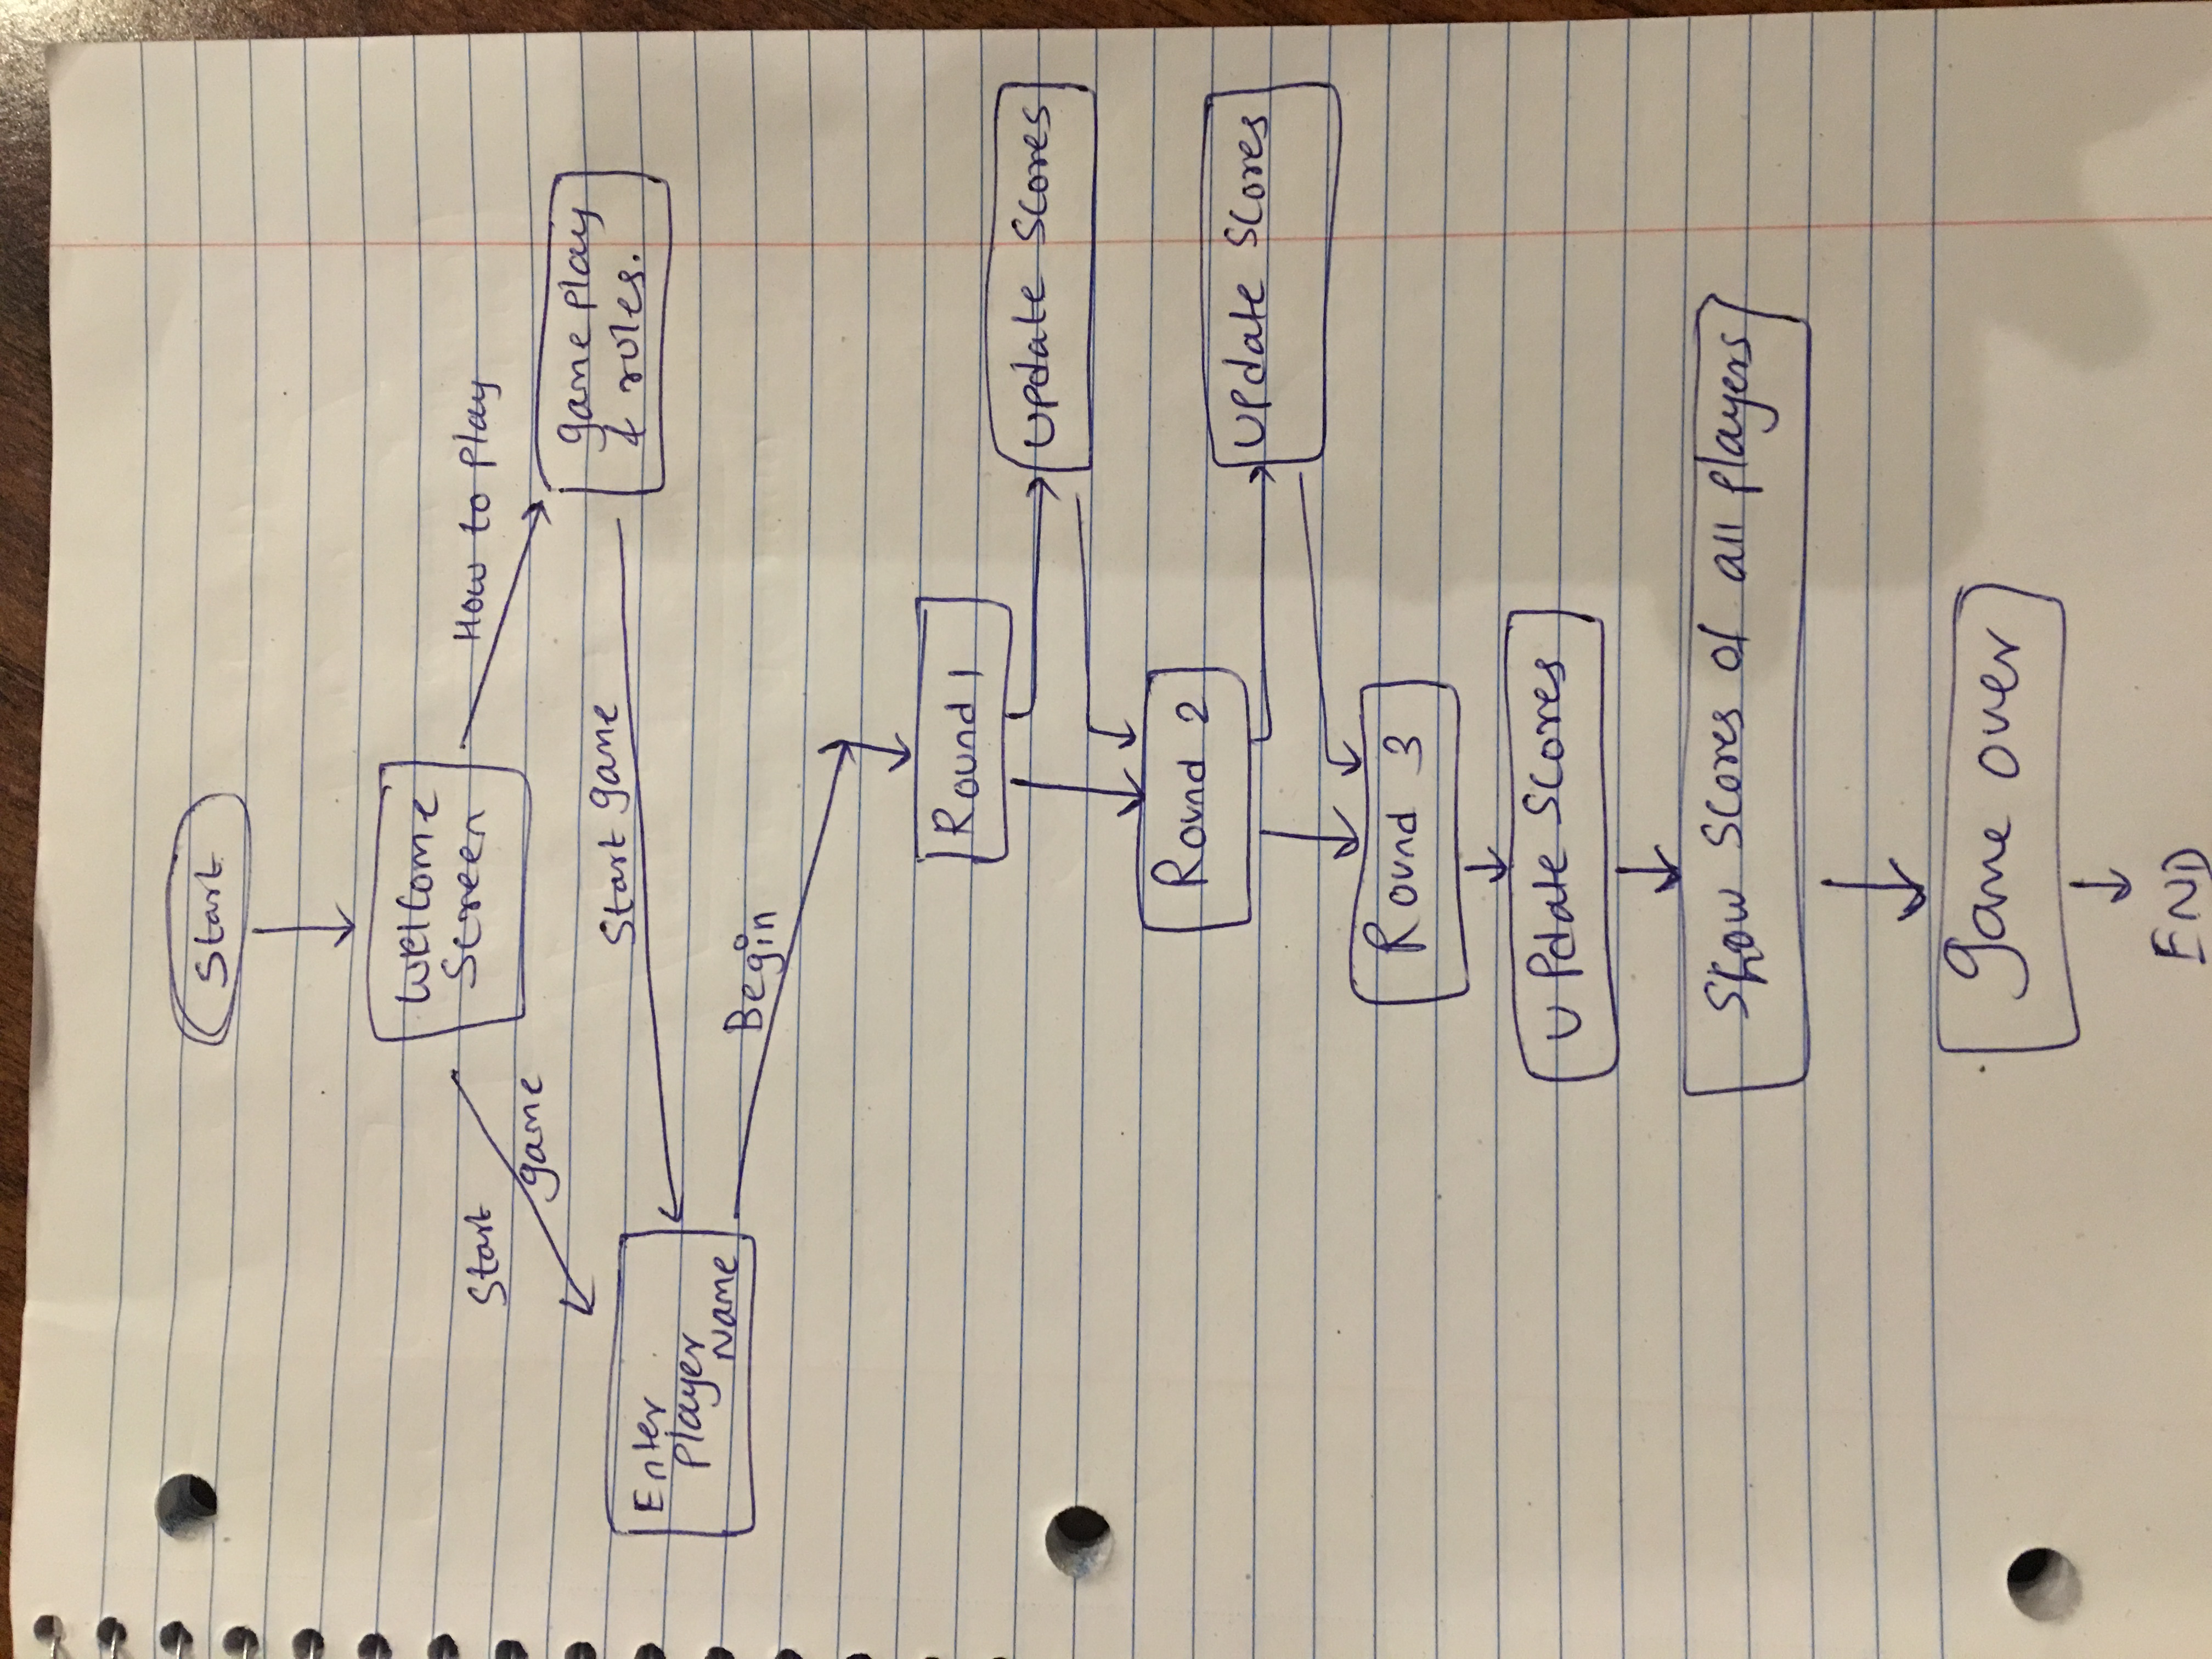 Start
Welcome
Screen
Start
game
How to Play
game play
& rules.
Start game
Enter
Player
Name
Begin
Round 1
Update Scores
Round 2
Update Scores
Round 3
Update Scores
Show Scores of all players
game over
END